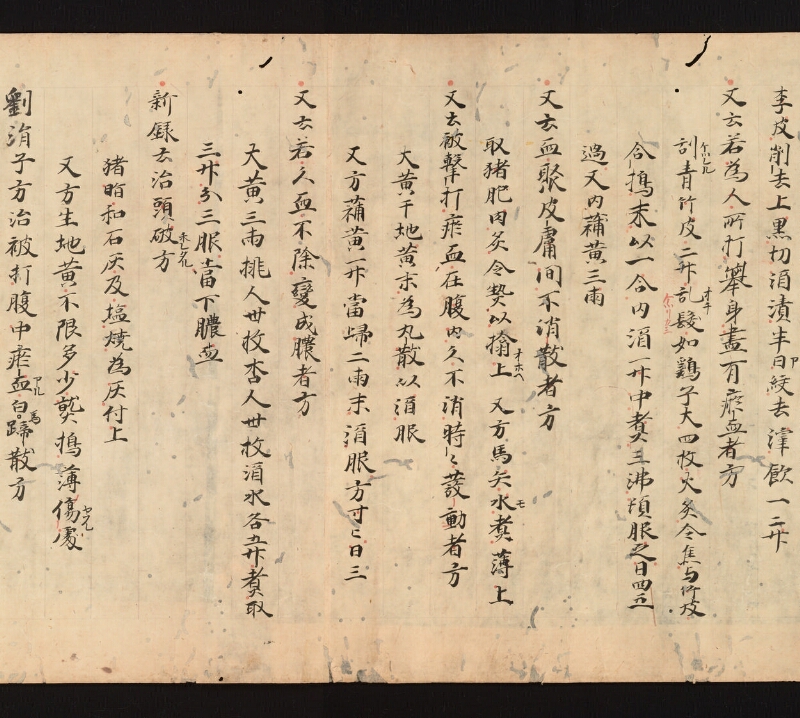 李皮削去上黒切酒漬半日絞去滓飲一二升
又云若為人所打舉身盡有瘀血者方
刮青竹皮二升乱髮如鷄子大四枚火炙令焦与竹皮
合搗末以一合内酒一升中煮三沸頓服之日四五
過又内蒲黄三兩
又云血聚皮膚間不消散者方
取猪肥肉炙令熱以搨上 又方馬矢水煮薄上
又云被擊打瘀血在腹内久不消時〻蕟動者方
大黄干地黄末為丸散以酒服
又方蒲黄一升當歸二兩末酒服方寸匕日三
又云若久血不除變成膿者方
大黄三兩桃人卅枚杏人卅枚酒水各五升煮取
三升分三服當下膿血
新録云治頭破方
猪脂和石灰及塩焼為灰付上
又方生地黄不限多少熟搗薄傷處
劉涓子方治被打腹中瘀血白馬蹄散方